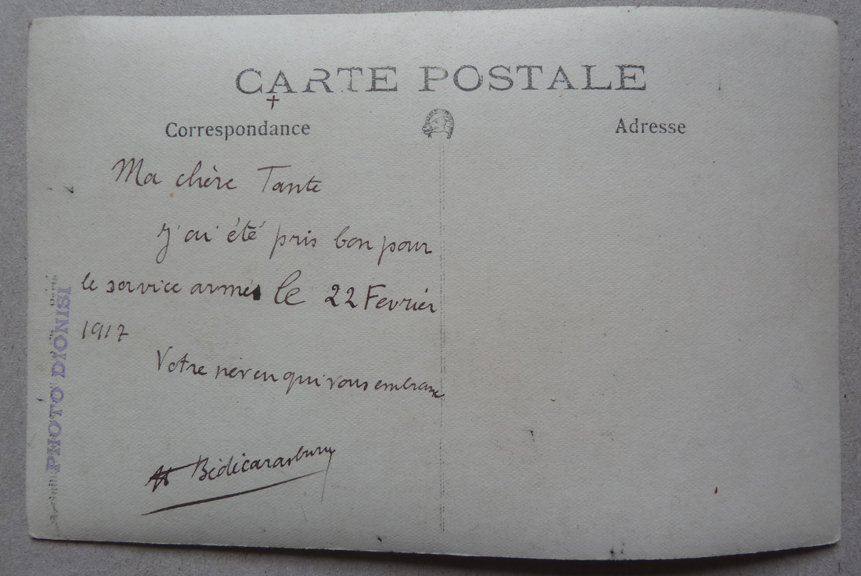 CARTE POSTALE
Correspondance
Adresse
Ma chère Tante
J'ai été pris bon pour
le service armé le 22 Fevrier
1917
Votre neveu qui vous embrasse
Bidicarasbury
PHOTO DIONISI